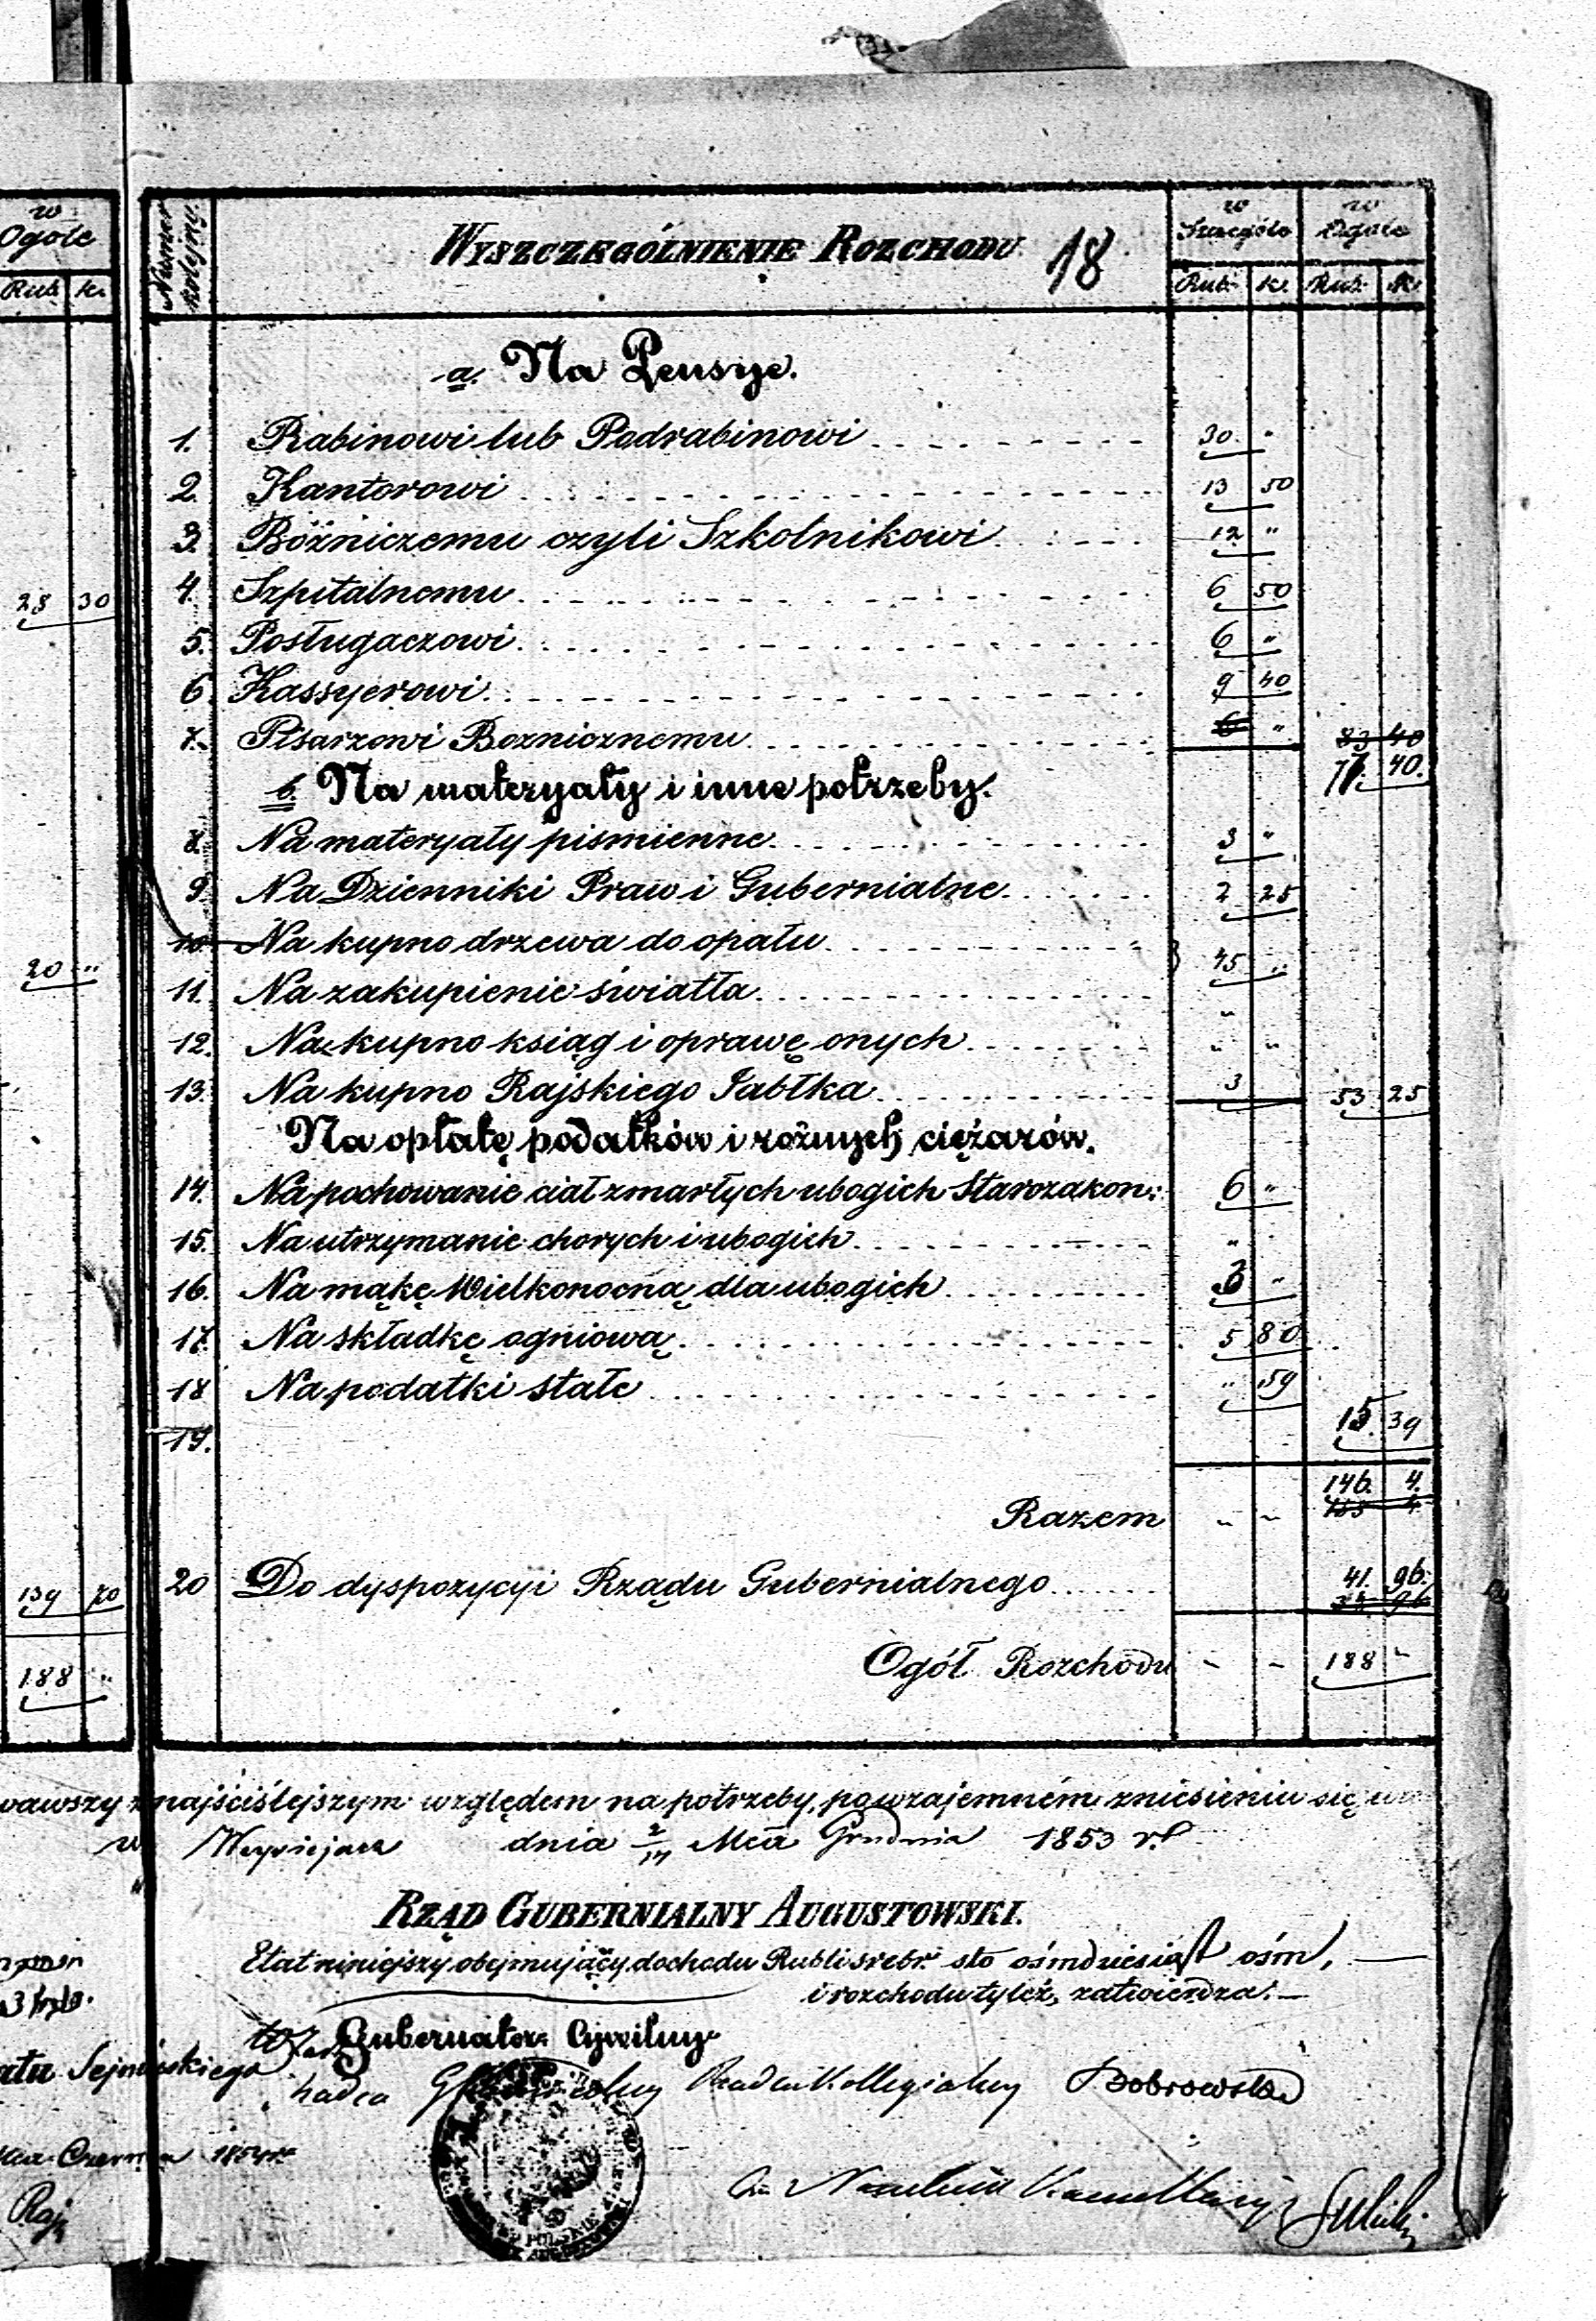 w Ogóle
Rub. k.
28 30
20 "
139 70
188 "
Numer kolejny.
WYSZCZEGÓLNIENIE ROZCHODU 18
w Szczególe
w Ogóle
Rub. k. Rub. k.
a. Na Pensye.
1. Rabinowi lub Podrabinowi 30 "
2. Kantorowi 13 50
3. Bóżniczemu czyli Szkolnikowi 12 "
4. Szpitalnemu 6 50
5. Posługaczowi 6 "
6 Kassyerowi 9 40
7. Pisarzowi Boznicznemu 6 " 83 40
77. 40.
b. Na materyały i inne potrzeby.
8. Na materyały piśmienne 3 "
9. Na Dzienniki Praw i Gubernialne 2 25
10. Na kupno drzewa do opału 45 "
11. Na zakupienie światła "
12. Na kupno ksiąg i oprawę onych " "
13. Na kupno Rajskiego Jabłka 3 53 25
Na opłatę podatków i rożnych ciężarów.
14. Na pochowanie ciał zmarłych ubogich Starozakon: 6 "
15. Na utrzymanie chorych i ubogich "
16. Na mąkę Wielkonocną dla ubogich 3 "
17. Na składkę ogniową 5 80
18 Na podatki stałe " 59
15 39
19.
146. 4.
Razem " "
20 Do dyspozycyi Rządu Gubernialnego 41. 96.
Ogół Rozchodu " " 188 "
wawszy z najściślejszym względem na potrzeby, powzajemném zniesieniu się
w dnia 2/14 Mca Grudnia 1853 r.
RZĄD GUBERNIALNY AUGUSTOWSKI.
Etat niniejszy obejmujący dochodu Rubli srebr. sto ośmdziesiąt ośm,
i rozchodu tyleż, zatwierdza.
Gubernator Cywilny
Sejneńskiego
Radca Kollegialny Dobrowolski
Czerwca 1854 r.
Naczelnik Kancellaryi